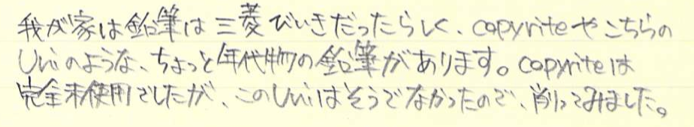 我が家は鉛筆は三菱びいきだったらしく、copyriteやこちらの
Uniのような、ちょっと年代物の鉛筆があります。copyriteは
完全未使用でしたが、このUniはそうでなかったので、削ってみました。